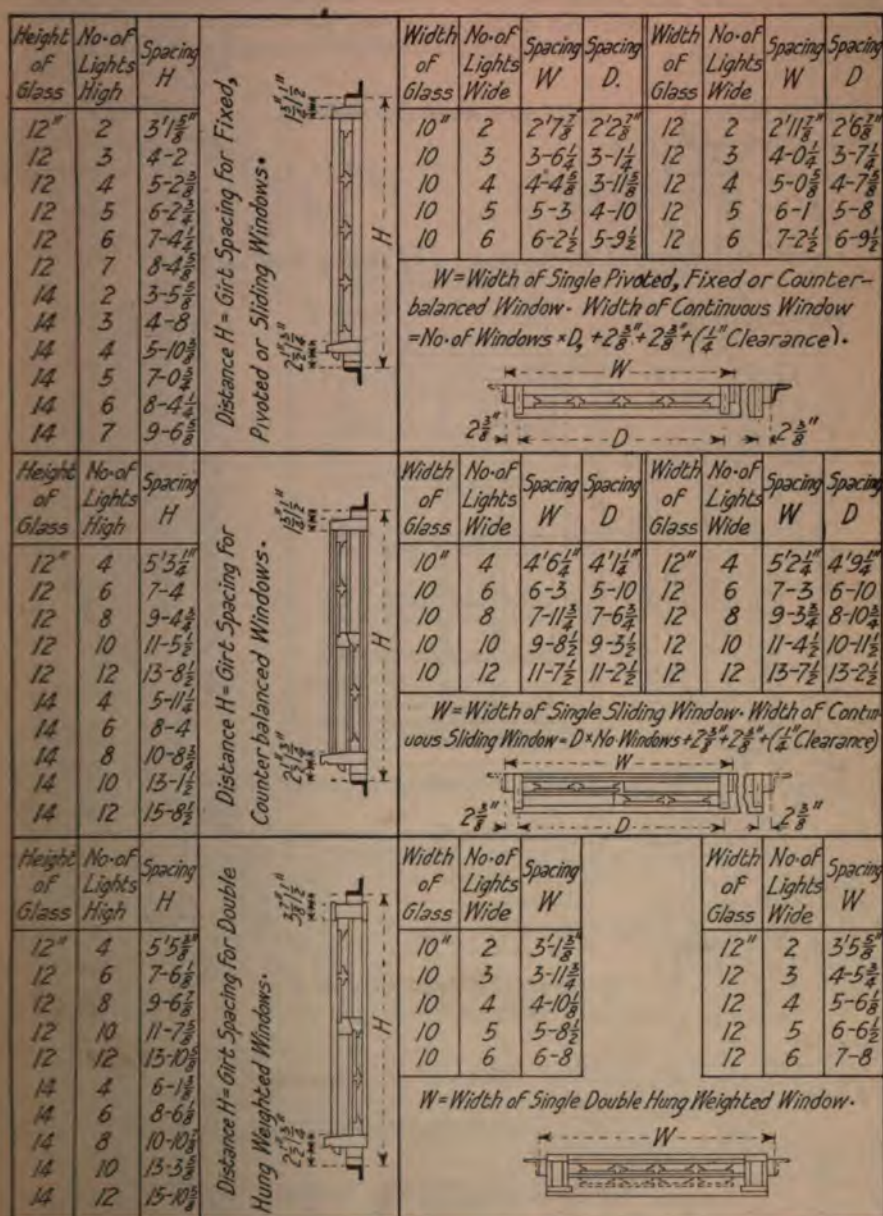 Height of Glass | No. of Lights High | Spacing H
12" | 2 | 3'1⅝"
12 | 3 | 4-2
12 | 4 | 5-2⅜
12 | 5 | 6-2¾
12 | 6 | 7-4½
12 | 7 | 8-4⅝
14 | 2 | 3-5⅝
14 | 3 | 4-8
14 | 4 | 5-10⅜
14 | 5 | 7-0¾
14 | 6 | 8-4½
14 | 7 | 9-6⅝
Distance H = Girt Spacing for Fixed,
Pivoted or Sliding Windows.
H
Width of Glass | No. of Lights Wide | Spacing W | Spacing D. | Width of Glass | No. of Lights Wide | Spacing W | Spacing D
10" | 2 | 2'7⅞" | 2'2⅞" | 12 | 2 | 2'11⅞" | 2'6⅞"
10 | 3 | 3-6¼ | 3-1¼ | 12 | 3 | 4-0¼ | 3-7¼
10 | 4 | 4-4⅝ | 3-11⅝ | 12 | 4 | 5-0⅝ | 4-7⅝
10 | 5 | 5-3 | 4-10 | 12 | 5 | 6-1 | 5-8
10 | 6 | 6-2½ | 5-9½ | 12 | 6 | 7-2½ | 6-9½
W = Width of Single Pivoted, Fixed or Counter-
balanced Window. Width of Continuous Window
= No. of Windows × D, + 2⅜" + 2⅜" + (¼" Clearance).
W
2⅜" D 2⅜"
Height of Glass | No. of Lights High | Spacing H
12" | 4 | 5'3¼"
12 | 6 | 7-4
12 | 8 | 9-4¾
12 | 10 | 11-5½
12 | 12 | 13-8½
14 | 4 | 5-11¼
14 | 6 | 8-4
14 | 8 | 10-8¾
14 | 10 | 13-1½
14 | 12 | 15-8½
Distance H = Girt Spacing for
Counter balanced Windows.
H
Width of Glass | No. of Lights Wide | Spacing W | Spacing D | Width of Glass | No. of Lights Wide | Spacing W | Spacing D
10" | 4 | 4'6¼" | 4'1¼" | 12" | 4 | 5'2¼" | 4'9¼"
10 | 6 | 6-3 | 5-10 | 12 | 6 | 7-3 | 6-10
10 | 8 | 7-11¾ | 7-6¾ | 12 | 8 | 9-3¾ | 8-10¾
10 | 10 | 9-8½ | 9-3½ | 12 | 10 | 11-4½ | 10-11½
10 | 12 | 11-7½ | 11-2½ | 12 | 12 | 13-7½ | 13-2½
W = Width of Single Sliding Window. Width of Contin-
uous Sliding Window = D × No Windows + 2⅜" + 2⅜" + (¼" Clearance)
W
2⅜" D 2⅜"
Height of Glass | No. of Lights High | Spacing H
12" | 4 | 5'5⅜"
12 | 6 | 7-6⅛
12 | 8 | 9-6⅞
12 | 10 | 11-7⅝
12 | 12 | 13-10⅝
14 | 4 | 6-1⅜
14 | 6 | 8-6⅛
14 | 8 | 10-10⅞
14 | 10 | 13-3⅝
14 | 12 | 15-10⅝
Distance H = Girt Spacing for Double
Hung Weighted Windows.
H
Width of Glass | No. of Lights Wide | Spacing W | Width of Glass | No. of Lights Wide | Spacing W
10" | 2 | 3'-1⅜" | 12" | 2 | 3'5⅝"
10 | 3 | 3-11¾ | 12 | 3 | 4-5¾
10 | 4 | 4-10⅛ | 12 | 4 | 5-6⅛
10 | 5 | 5-8½ | 12 | 5 | 6-6½
10 | 6 | 6-8 | 12 | 6 | 7-8
W = Width of Single Double Hung Weighted Window.
W